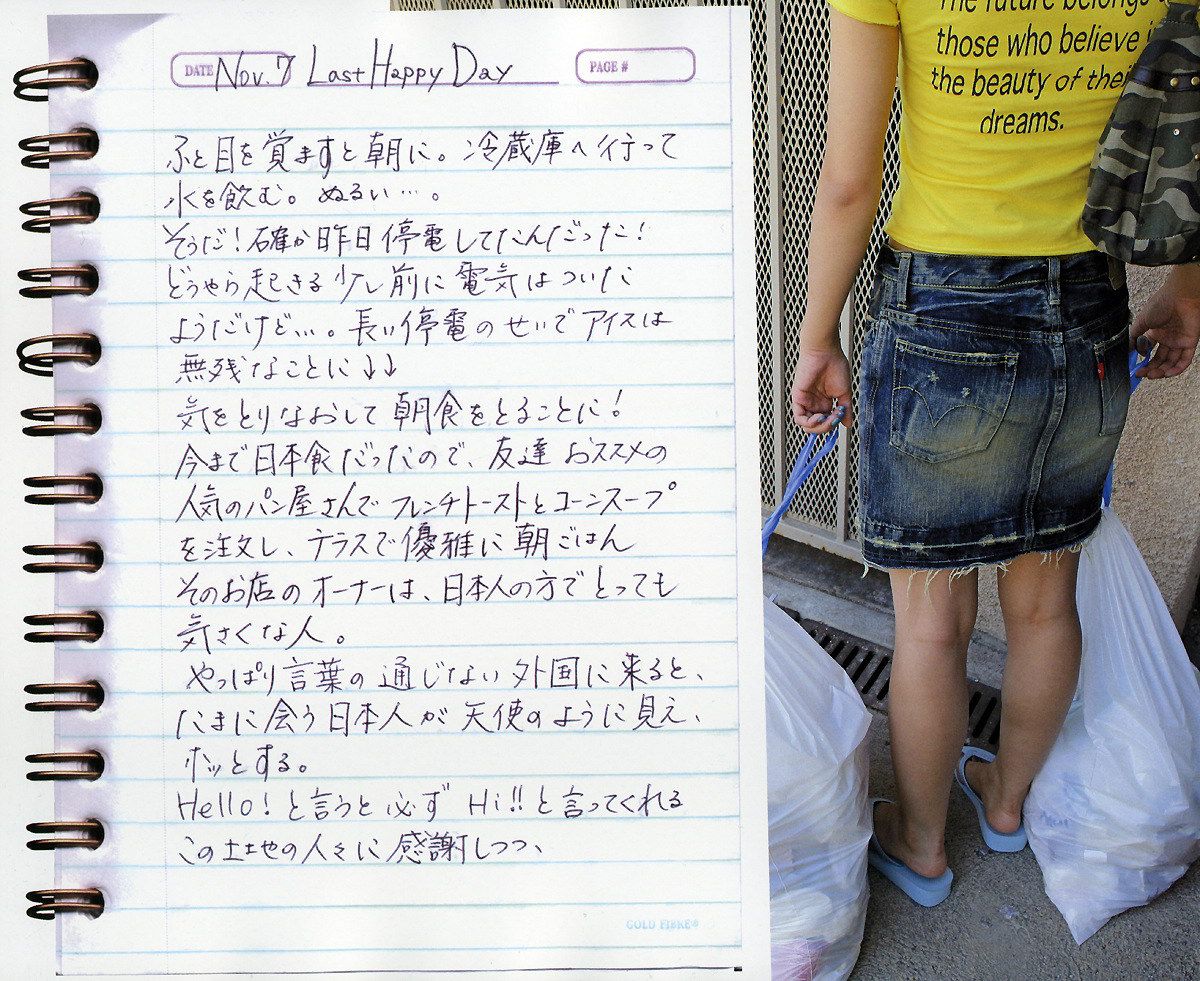 DATE Nov. 7 Last Happy Day PAGE #
ふと目を覚ますと朝に。冷蔵庫へ行って
水を飲む。ぬるい…。
そうだ！確か昨日停電してたんだった！
どうやら起きる少し前に電気はついた
ようだけど…。長い停電のせいでアイスは
無残なことに↓↓
気をとりなおして朝食をとることに！
今まで日本食だったので、友達おススメの
人気のパン屋さんでフレンチトーストとコーンスープ
を注文し、テラスで優雅に朝ごはん
そのお店のオーナーは、日本人の方でとっても
気さくな人。
やっぱり言葉の通じない外国に来ると、
たまに会う日本人が天使のように見え、
ホッとする。
Hello！と言うと必ずHi!!と言ってくれる
この土地の人々に感謝しつつ、
GOLD FIBRE®
The future belongs
those who believe i
the beauty of their
dreams.